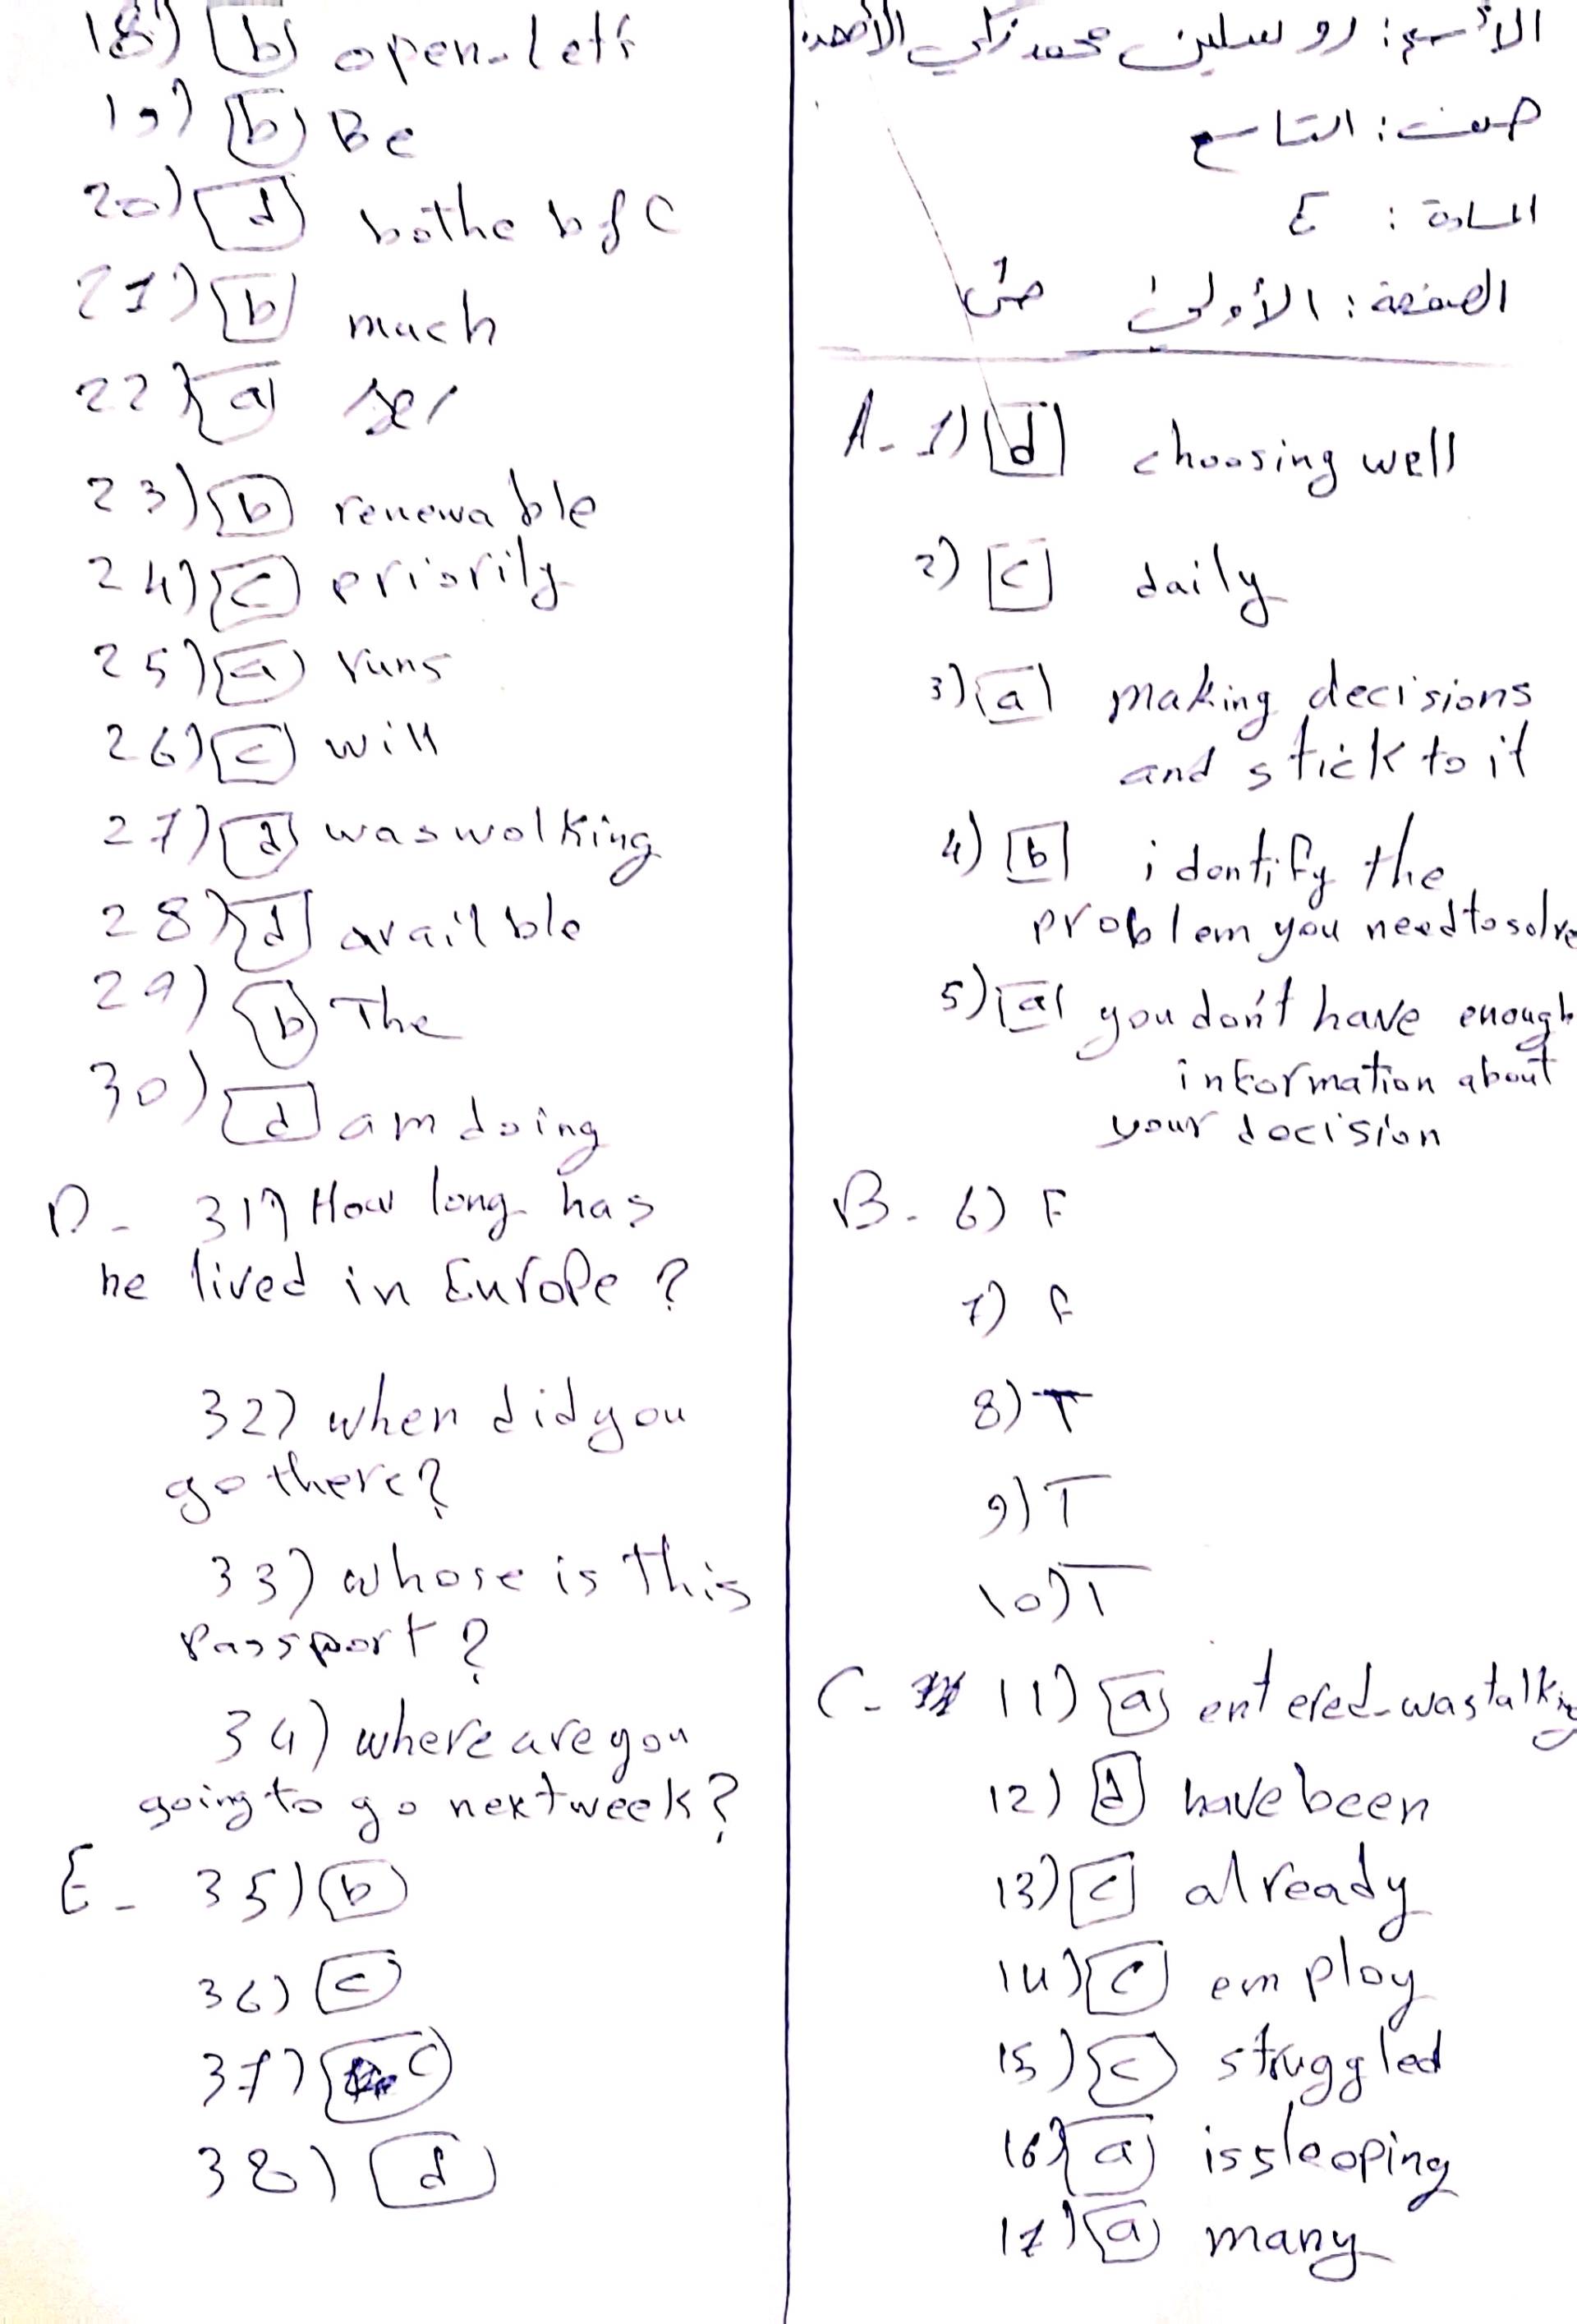 الأسم: روسلين محمد زكي الأحمد
صف: التاسع
المادة: E
الصفحة: الأولى ص1
A- 1) d choosing well
2) c daily
3) a making decisions
and stick to it
4) b idontify the
problem you need to solve
5) a you don't have enough
information about
your docision
B- 6) F
7) F
8) T
9) T
10) T
C- 11) a entered-was talking
12) d have been
13) c already
14) c employ
15) c struggled
16) a is sleoping
17) a many
18) b open-left
19) b Be
20) d bothe b & C
21) b much
22) a
23) b renewable
24) c priorily
25) a runs
26) c will
27) d was wolking
28) d availble
29) b The
30) d am doing
D- 31) How long has
he lived in Europe ?
32) when did you
go there?
33) whose is This
Passport ?
34) where are you
going to go next week?
E- 35) b
36) c
37) c
38) d